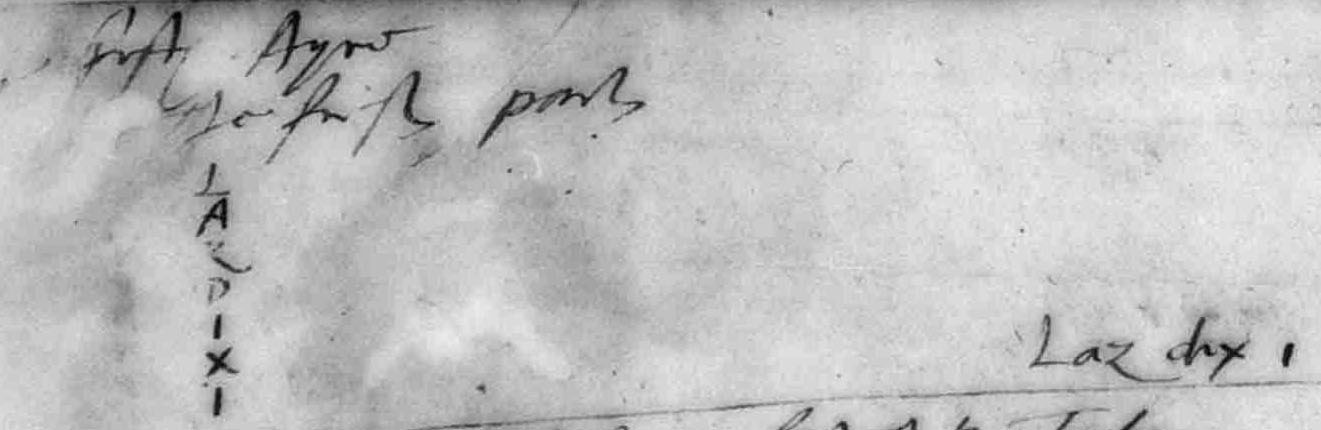 first Ayre
The first parte
L
A
Z
D
I
X
I
Laz dix i